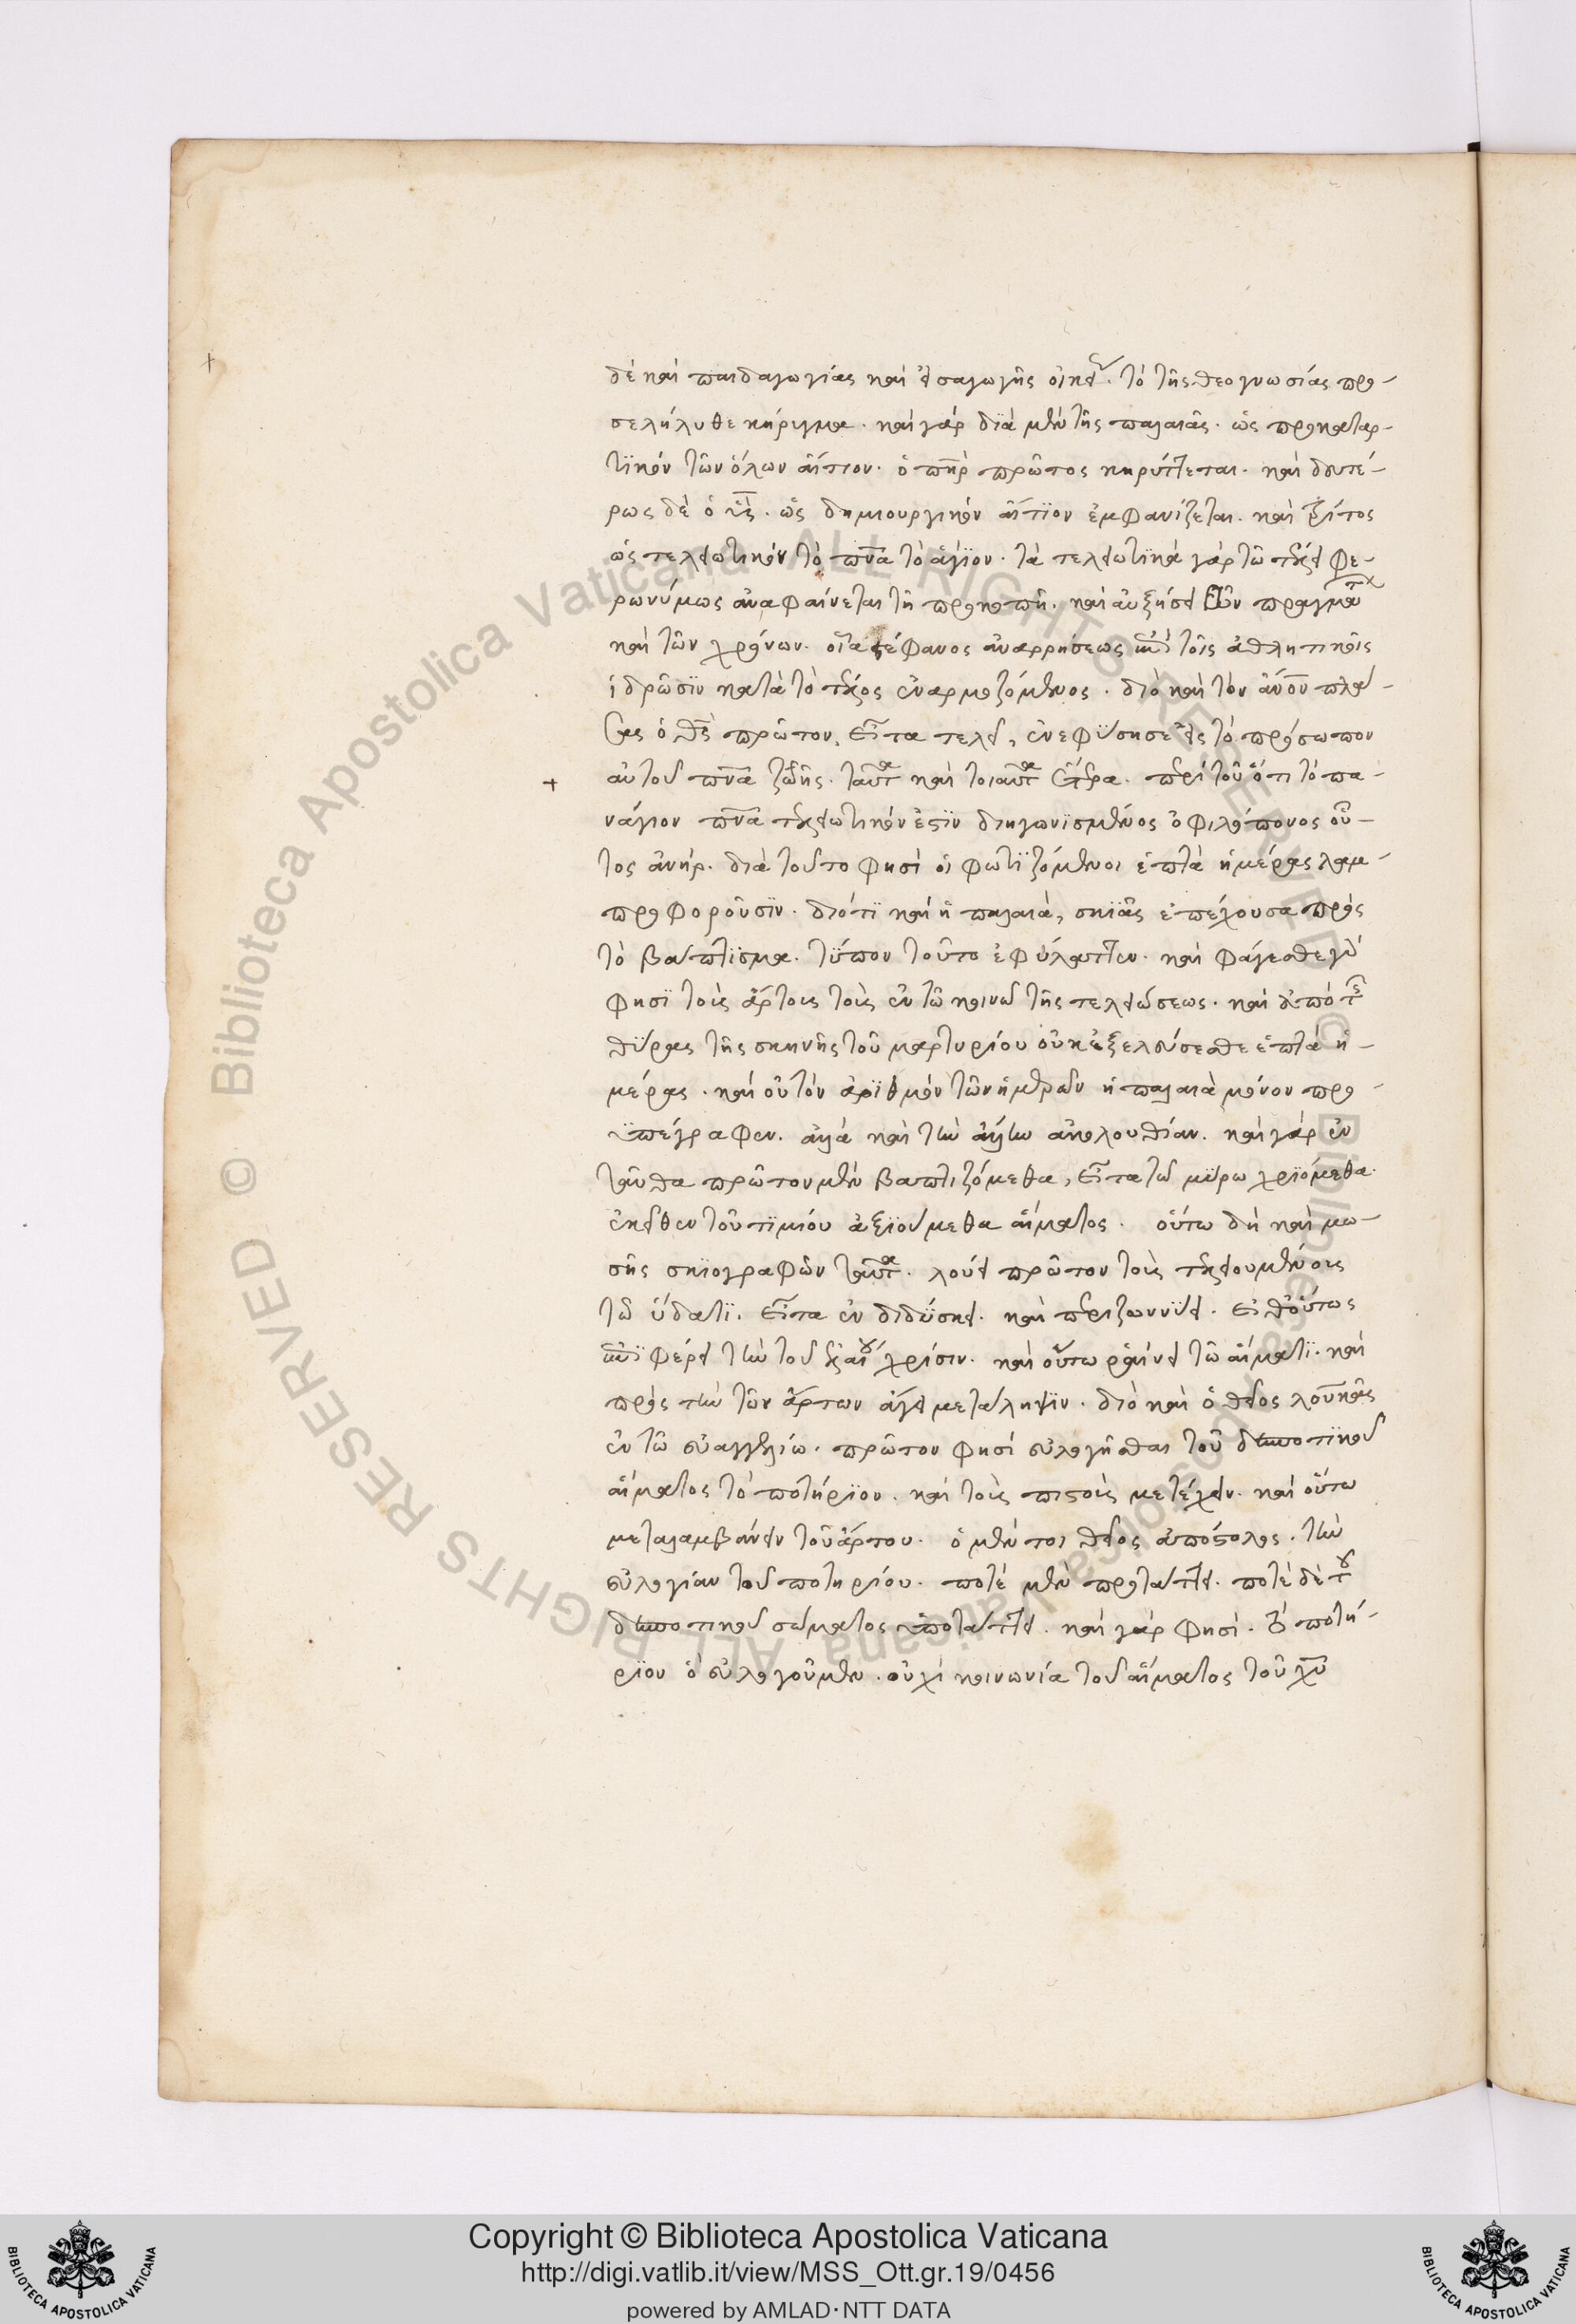 δὲ καὶ παιδαγωγίας καὶ εἰσαγωγῆς τὸ τῆς θεογνωσίας προ-
σελήλυθε κήριγμα. καὶ γὰρ διὰ μὲν τῆς παλαιᾶς. ὡς προκαταρ-
τϊκὸν τῶν ὅλων αἴτιον. ὁ πη̅ρ πρῶτος κηρύττεται. καὶ δευτέ-
ρως δὲ ὁ υι̅ς. ὡς δημιουργικὸν αἴτϊον ἐμφανίζεται. καὶ τρίτος
ὡς τελειωτικὸν τὸ πν̅α τὸ ἅγϊον. τὰ τελειωτϊκὰ γὰρ τῶ τέλει φε-
ρωνύμως ἀναφαίνεται τῆ προκοπῆ. καὶ αὐξήσει τῶν πραγμάτ
καὶ τῶν χρόνων. οἷα στέφανος ἀναρρήσεως ἐπὶ τοῖς ἀθλητικοῖς
ἱδρῶσϊν κατὰ τὸ τέλος ἐναρμοζόμενος. διὸ καὶ τὸν ἄν̅ον πλά-
σας ὁ θς̅ πρῶτον, εἶτα τελεῖ, ἐνεφύσησε εἰς τὸ πρόσωπον
αὐτοῦ πν̅α ζωῆς. ταῦτα καὶ τοιαῦτα ἕτερα. περὶ τοῦ ὅτι τὸ πα-
νάγιον πν̅α τελειωτικόν ἐστϊν διηγωνϊσμένος ὁ φιλόπονος οὗ-
τος ἀνήρ. διὰ τοῦτο φησὶ οἱ φωτϊζόμενοι ἑπτὰ ἡμέρας λαμ-
προφοροῦσϊν. διότϊ καὶ ἡ παλαιὰ, σκϊᾶς ἐπέχουσα πρὸς
τὸ βάπτϊσμα. τύπον τοῦτο ἐφύλαττεν. καὶ φάγεσθε γὰρ
φησϊ τοὺς ἄρτους τοὺς ἐν τῶ κανῶ τῆς τελειώσεως. καὶ ἀπὸ τε
θύρας τῆς σκηνῆς τοῦ μαρτυρίου οὐκ ἐξελεύσεσθε ἑπτὰ ἡ-
μέρας. καὶ οὐ τὸν ἀρϊθμὸν τῶν ἡμερῶν ἡ παλαιὰ μόνον προ-
ϋπέγραφεν. ἀλλὰ καὶ τὴν αὐτὴν ἀκολουθίαν. καὶ γὰρ ἐν
ταῦθα πρῶτον μὲν βαπτιζόμεθα, εἶτα τῶ μύρω χρϊόμεθα.
ἐκεῖθεν τοῦ τϊμίου ἀξϊούμεθα αἵματος. οὕτω δὴ καὶ μω-
σῆς σκϊογραφῶν ταῦτα. λούει πρῶτον τοὺς τελειουμένους
τῶ ὕδατϊ. εἶτα ἐνδιδύσκει. καὶ περιζωννύει. εἶθ' οὕτως
ἐπϊφέρει τὴν τοῦ ἐλαίου χρίσιν. καὶ οὕτω ῥαίνει τῶ αἵματϊ. καὶ
πρὸς τὴν τῶν ἄρτων ἄγει μετάληψϊν. διὸ καὶ ὁ θεῖος λουκᾶς
ἐν τῶ εὐαγγελίω. πρῶτον φησί εὐλογῆσθαι τοῦ δεσποτϊκοῦ
αἵματος τὸ ποτήρϊον. καὶ τοὺς πιστοὺς μετέχειν. καὶ οὕτω
μεταλαμβάνειν τοῦ ἄρτου. ὁ μέντοι θεῖος ἀπόστολος. τὴν
εὐλογίαν τοῦ ποτηρίου. ποτὲ μὲν προτάττει. ποτὲ δὲ του
δεσποτικοῦ σώματος ὑποτάττει. καὶ γὰρ φησί. τὸ ποτή-
ρϊον ὃ εὐλογοῦμεν. οὐχὶ κοινωνία τοῦ αἵματος τοῦ χυ̅
Copyright © Biblioteca Apostolica Vaticana
http://digi.vatlib.it/view/MSS_Ott.gr.19/0456
powered by AMLAD·NTT DATA